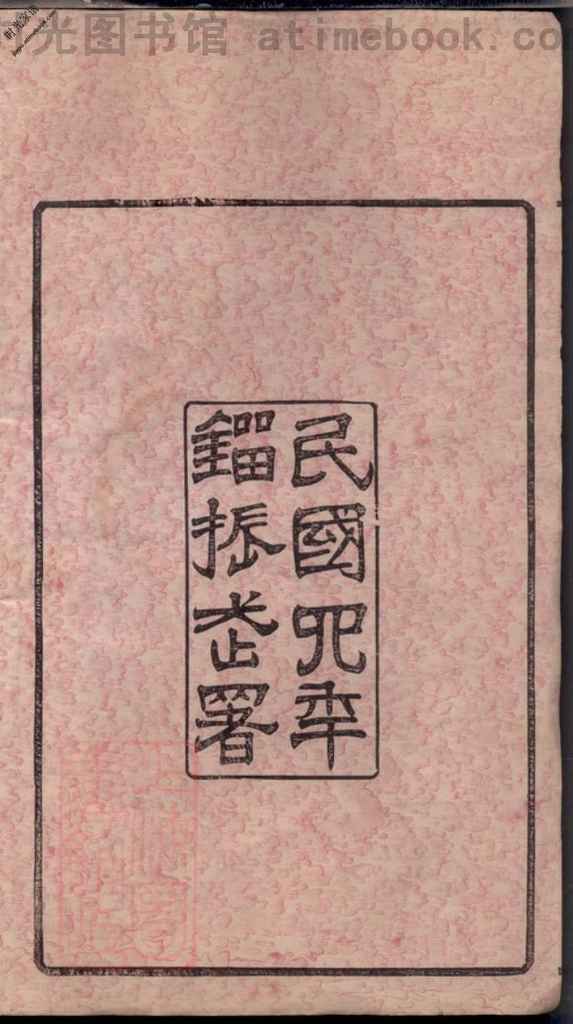 光图书馆 atimebook.co
民國四年
鎦振武署